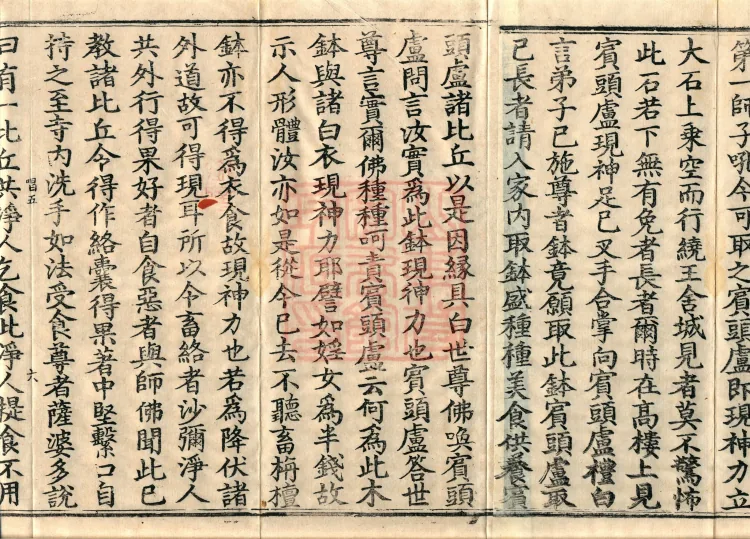 第一師子吼今可取之賓頭盧即現神力立
大石上乘空而行繞王舍城見者莫不驚怖
此石若下無有免者長者爾時在高樓上見
賓頭盧現神足已叉手合掌向賓頭盧禮白
言弟子已施尊者鉢竟願取此鉢賓頭盧取
已長者請入家內取鉢盛種種美食供養賓
頭盧諸比丘以是因緣具白世尊佛喚賓頭
盧問言汝實為此鉢現神力也賓頭盧答世
尊言實爾佛種種呵責賓頭盧云何為此木
鉢與諸白衣現神力耶譬如婬女為半錢故
示人形體汝亦如是從今已去不聽畜栴檀
鉢亦不得為衣食故現神力也若為降伏諸
外道故可得現耳所以令畜絡者沙彌淨人
共外行得果好者自食惡者與師佛聞此已
教諸比丘令得作絡囊得果著中堅繫口自
持之至寺內洗手如法受食尊者薩婆多說
唱五
六
曰有一比丘共淨人乞食此淨人提食不用